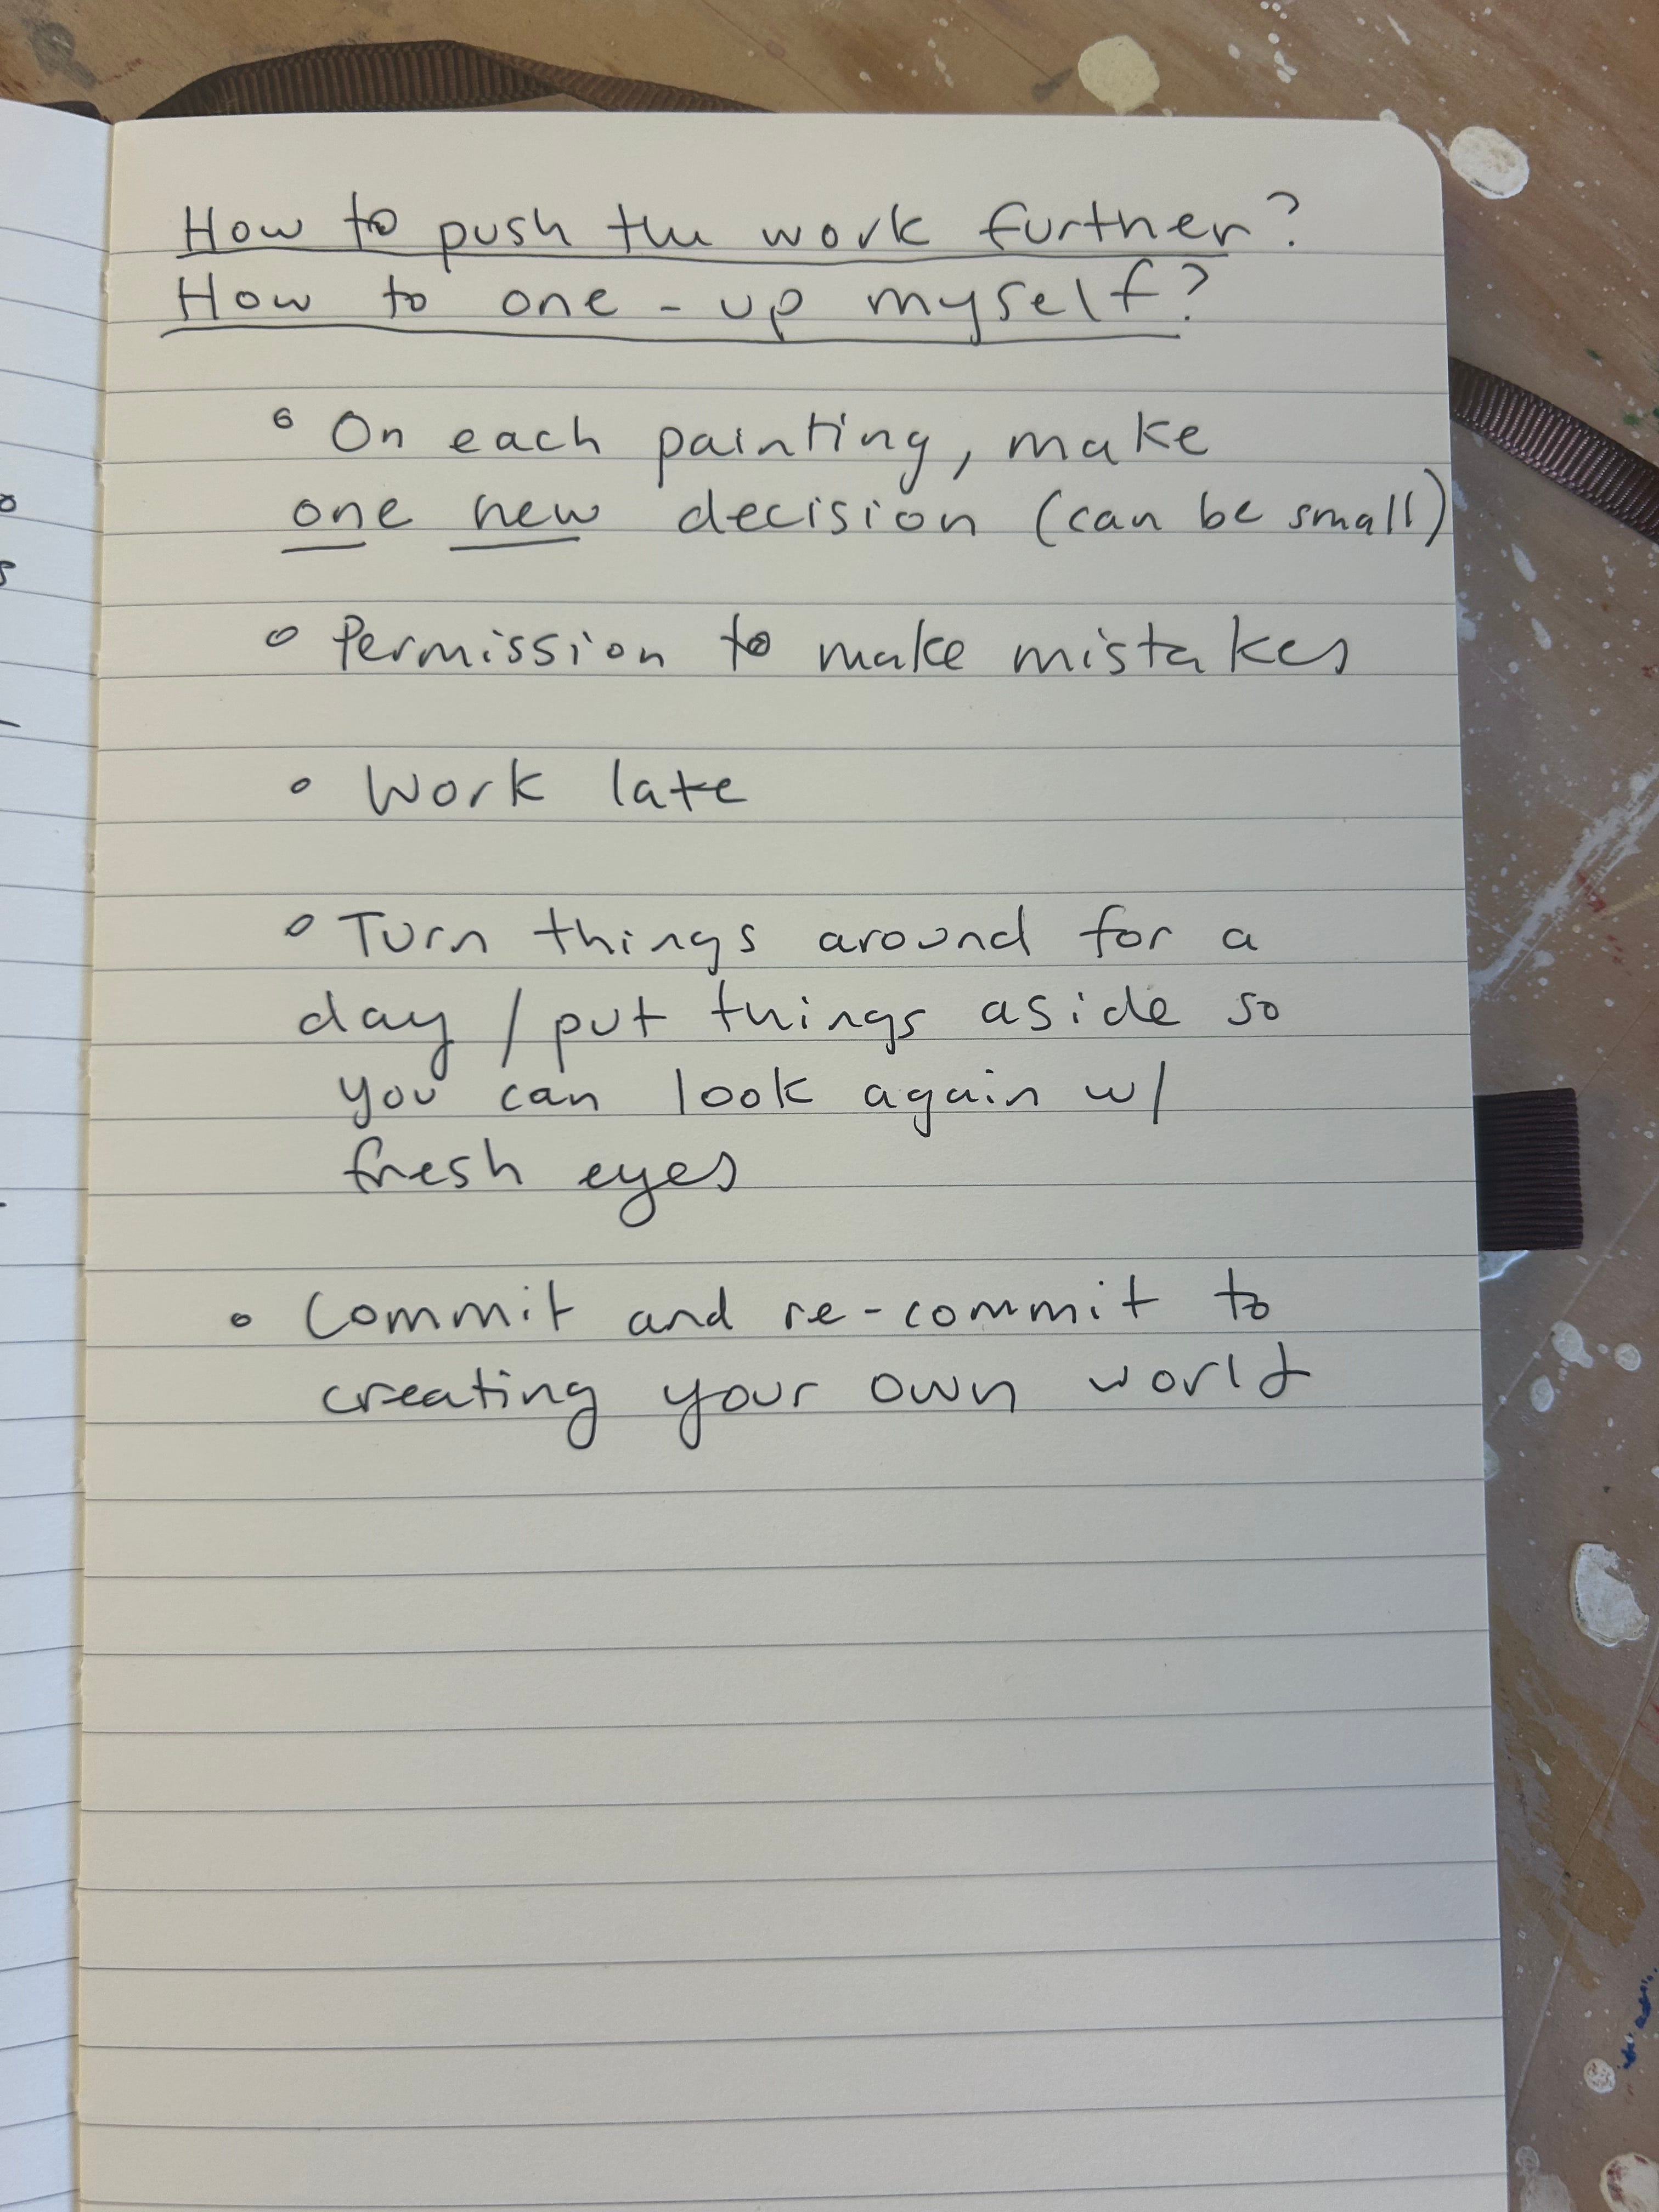 How to push the work further?
How to one-up myself?
◦ On each painting, make
one new decision (can be small)
◦ Permission to make mistakes
◦ Work late
◦ Turn things around for a
day / put things aside so
you can look again w/
fresh eyes
◦ Commit and re-commit to
creating your own world